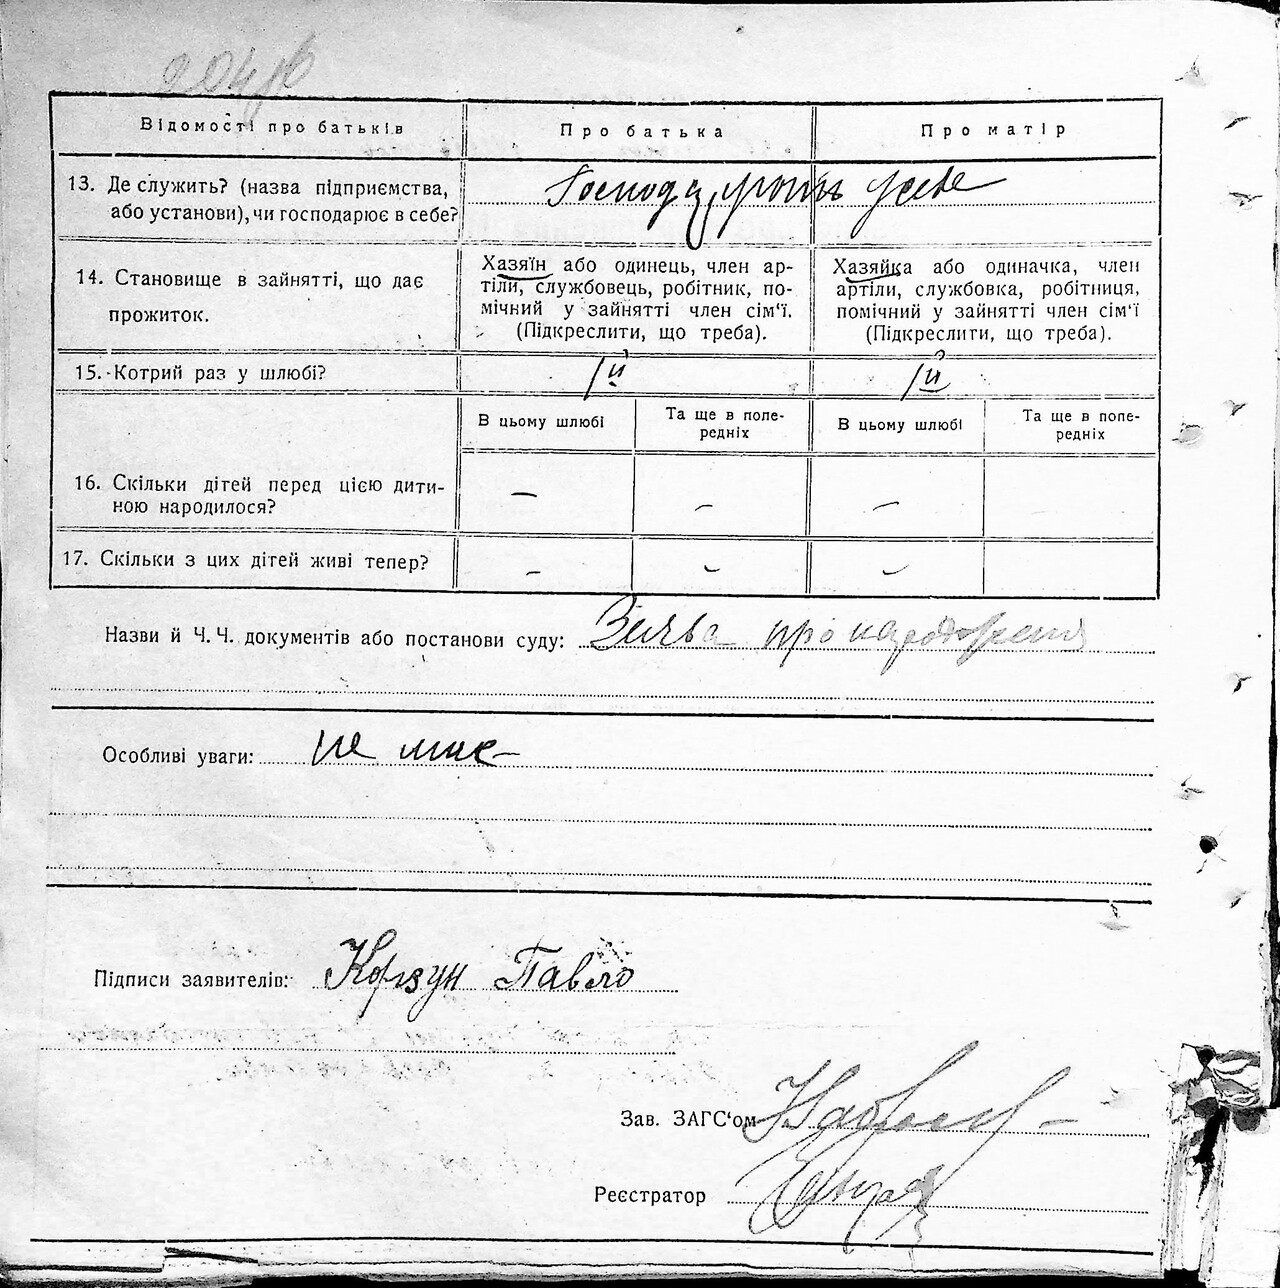 Відомості про батьків
Про батька
Про матір
13. Де служить? (назва підприємства,
або установи), чи господарює в себе?
Господарюють у себе
14. Становище в зайнятті, що дає
прожиток.
Хазяїн або одинець, член ар-
тіли, службовець, робітник, по-
мічний у зайнятті член сім'ї.
(Підкреслити, що треба).
Хазяйка або одиначка, член
артіли, службовка, робітниця,
помічний у зайнятті член сім'ї
(Підкреслити, що треба).
15. Котрий раз у шлюбі?
1й
1й
В цьому шлюбі
Та ще в попе-
редніх
В цьому шлюбі
Та ще в попе-
редніх
16. Скільки дітей перед цією дити-
ною народилося?
–
–
–
17. Скільки з цих дітей живі тепер?
–
–
–
Назви й Ч. Ч. документів або постанови суду: Заява про народження
Особливі уваги: не має
Підписи заявителів: Корзун Павло
Зав. ЗАГС'ом
Реєстратор